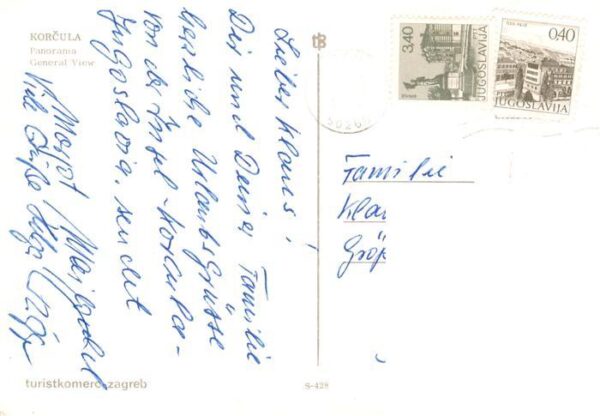 KORČULA
Panorama
General View
Lieber Klaus!
Dir und Deiner Familie
herzliche Urlaubsgrüsse
von der Insel-Korčula-
Jugoslavia. sendet
Viele Grüße
3,40
JUGOSLAVIJA
0,40
JUGOSLAVIJA
50260
Familie
Kla
Grö
turistkomerc-zagreb
S-428